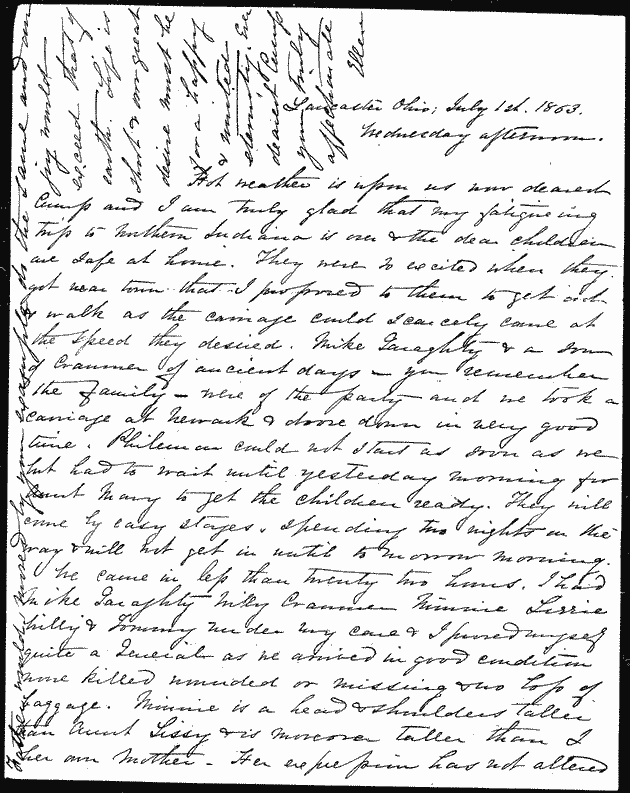 Lancaster Ohio, July 1st. 1863.
Wednesday afternoon.
Hot weather is upon us now dearest
Cump and I am truly glad that my fatigueing
trip to Northern Indiana is over & the dear children
are safe at home. They were so excited when they
got near town that I proposed to them to get out
& walk as the carriage could scarcely come at
the speed they desired. Mike Garaghty & a son
of Cranmer of ancient days – you remember
the family – were of the party and we took a
carriage at Newark & drove down in very good
time. Philemon could not start as soon as we
but had to wait until yesterday morning for
Aunt Mary to get the children ready. They will
come by easy stages, spending two nights on the
way & will not get in until to morrow morning.
We came in less than twenty two hours. I had
Mike Garaghty Niky Cranmer Minnie Lizzie
Willy & Tommy under my care & I proved myself
quite a General as we arrived in good condition
none killed wounded or missing & no loss of
baggage. Minnie is a head & shoulders taller
than Aunt Sissy & is moreover taller than I
her own Mother – Her expression has not altered
Father would moved by your example do the same and our
joy would
exceed that of
earth. Life is
short & our great
desire must be
for a happy
& united
eternity. Ever
dearest Cump
your truly
affectionate
Ellen